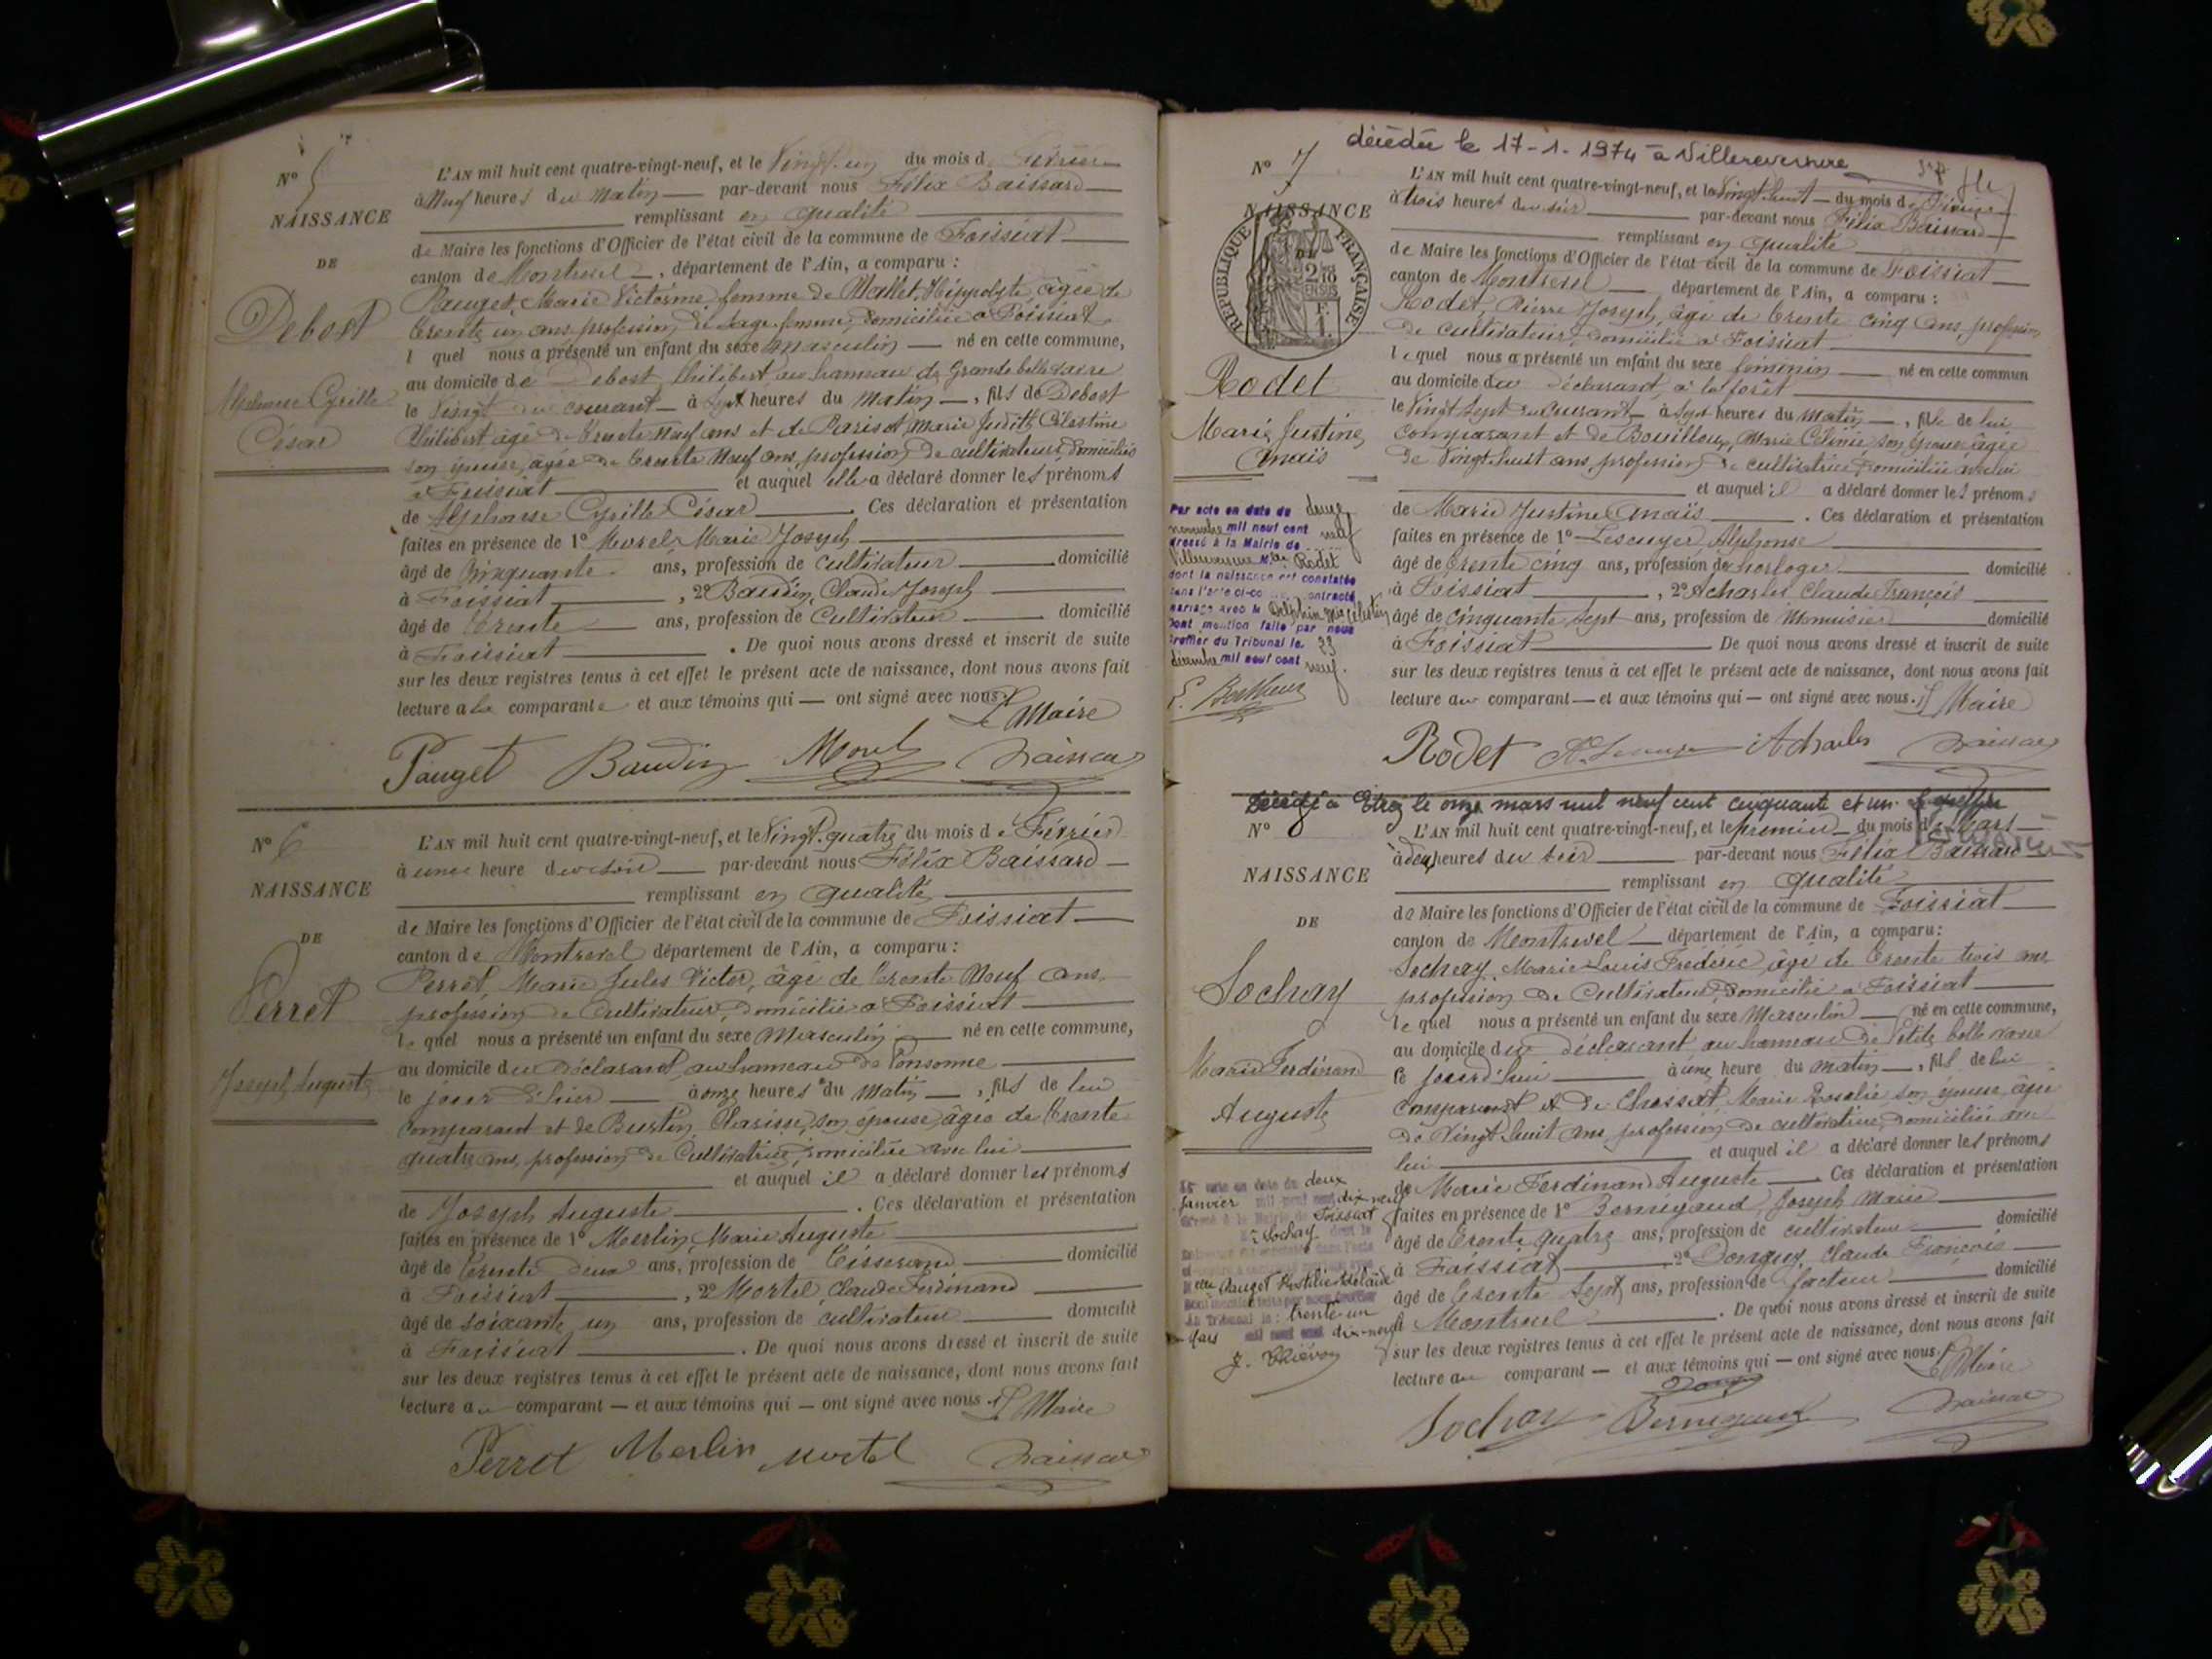 N° 5
NAISSANCE
DE
Debost
Alphonse Cyrille
César
L'AN mil huit cent quatre-vingt-neuf, et le Vingt-un du mois de Février
à Neuf heures du Matin par-devant nous Félix Baissard
remplissant en qualité
de Maire les fonctions d'Officier de l'état civil de la commune de Foissiat
canton de Montrevel, département de l'Ain, a comparu :
Pauget, Marie Victorine, femme de Mallet, Hippolyte, âgée de
trente un ans, profession de sage-femme, domiciliée à Foissiat
l quel nous a présenté un enfant du sexe masculin né en cette commune,
au domicile de Debost Philibert, au hameau de Grande belle vavre
le Vingt du courant à Sept heures du Matin, fils de Debost
Philibert âgé de trente neuf ans et de Parisot, Marie Judith Célestine
son épouse, âgée de trente Neuf ans, profession de cultivateurs, domiciliés
à Foissiat et auquel elle a déclaré donner les prénoms
de Alphonse Cyrille César. Ces déclaration et présentation
faites en présence de 1° Morel, Marie Joseph
âgé de Cinquante ans, profession de cultivateur domicilié
à Foissiat, 2° Baudin, Claude Joseph
âgé de trente ans, profession de Cultivateur domicilié
à Foissiat. De quoi nous avons dressé et inscrit de suite
sur les deux registres tenus à cet effet le présent acte de naissance, dont nous avons fait
lecture a la comparante et aux témoins qui — ont signé avec nous. Le Maire
Pauget Baudin Morel Baissard
N° 6
NAISSANCE
DE
Perret
Joseph Auguste
L'AN mil huit cent quatre-vingt-neuf, et le Vingt-quatre du mois de Février
à une heure du soir par-devant nous Félix Baissard
remplissant en qualité
de Maire les fonctions d'Officier de l'état civil de la commune de Foissiat
canton de Montrevel département de l'Ain, a comparu :
Perret, Marie Jules Victor, âgé de trente Neuf ans,
profession de Cultivateur, domicilié à Foissiat
le quel nous a présenté un enfant du sexe Masculin né en cette commune,
au domicile du déclarant, au hameau de Ponsonne
le jour d'hier à onze heures du Matin, fils de lui
comparant et de Burtin, Clarisse, son épouse, âgée de trente
quatre ans, profession de Cultivatrice, domiciliée avec lui
et auquel il a déclaré donner les prénoms
de Joseph Auguste. Ces déclaration et présentation
faites en présence de 1° Merlin, Marie Auguste
âgé de trente deux ans, profession de tisserand domicilié
à Foissiat, 2° Mortel, Claude Ferdinand
âgé de soixante un ans, profession de cultivateur domicilié
à Foissiat. De quoi nous avons dressé et inscrit de suite
sur les deux registres tenus à cet effet le présent acte de naissance, dont nous avons fait
lecture au comparant — et aux témoins qui — ont signé avec nous. Le Maire
Perret Merlin Mortel Baissard
décédée le 17-1-1974 à Villereversure
N° 7
NAISSANCE
DE
RÉPUBLIQUE FRANÇAISE
Rodet
Marie Justine
Anaïs
Par acte en date du douze
novembre mil neuf cent neuf
dressé à la Mairie de
Villereversure Mlle Rodet
dont la naissance est constatée
dans l'acte ci-contre a contracté
mariage avec M
Dont mention faite par nous
Greffier du Tribunal le 23
décembre mil neuf cent neuf.
L'AN mil huit cent quatre-vingt-neuf, et le Vingt huit du mois de Février
à trois heures du soir par-devant nous Félix Baissard
remplissant en qualité
de Maire les fonctions d'Officier de l'état civil de la commune de Foissiat
canton de Montrevel département de l'Ain, a comparu :
Rodet, Pierre Joseph, âgé de trente cinq ans, profession
de cultivateur, domicilié à Foissiat
le quel nous a présenté un enfant du sexe féminin né en cette commun
au domicile du déclarant, à la forêt
le Vingt Sept du courant à Sept heures du Matin, fille de lui
comparant et de Bouilloux, Marie Célinie, son épouse, âgée
de Vingt huit ans, profession de cultivatrice domiciliée avec lui
et auquel il a déclaré donner les prénoms
de Marie Justine Anaïs. Ces déclaration et présentation
faites en présence de 1° Lescuyer Alphonse
âgé de trente cinq ans, profession de horloger domicilié
à Foissiat, 2° Acharles Claude François
âgé de cinquante Sept ans, profession de Menuisier domicilié
à Foissiat De quoi nous avons dressé et inscrit de suite
sur les deux registres tenus à cet effet le présent acte de naissance, dont nous avons fait
lecture au comparant — et aux témoins qui — ont signé avec nous. Le Maire
Rodet A. Lescuyer Acharles Baissard
Décédé à Etrez le onze mars mil neuf cent cinquante et un
N° 8
NAISSANCE
DE
Sochay
Marie Ferdinand
Auguste
Par acte en date du deux
Janvier mil neuf cent dix-neuf
dressé à la Mairie de Foissiat
Sochay dont la
Pauget Rosalie Adélaïde
Dont mention faite par nous Greffier
du Tribunal le: trente un
Mars mil neuf cent dix-neuf
L'AN mil huit cent quatre-vingt-neuf, et le premier du mois de Mars
à deux heures du soir par-devant nous Félix Baissard
remplissant en qualité
de Maire les fonctions d'Officier de l'état civil de la commune de Foissiat
canton de Montrevel département de l'Ain, a comparu:
Sochay, Marie Louis Frédéric, âgé de trente trois ans,
profession de Cultivateur, domicilié à Foissiat
le quel nous a présenté un enfant du sexe Masculin né en cette commune,
au domicile du déclarant au hameau de Petite belle vavre
le jourd'hui à une heure du matin, fils de lui
comparant et de Chossat, Marie Rosalie son épouse, âgée
de Vingt huit ans, profession de cultivatrice, domiciliée avec
lui et auquel il a déclaré donner les prénoms
de Marie Ferdinand Auguste Ces déclaration et présentation
faites en présence de 1° Bernigaud, Joseph Marie
âgé de trente quatre ans, profession de cultivateur domicilié
à Foissiat 2° Donguy, Claude François
âgé de trente Sept ans, profession de facteur domicilié
à Montrevel. De quoi nous avons dressé et inscrit de suite
sur les deux registres tenus à cet effet le présent acte de naissance, dont nous avons fait
lecture au comparant — et aux témoins qui — ont signé avec nous. Le Maire
Sochay Bernigaud Donguy Baissard